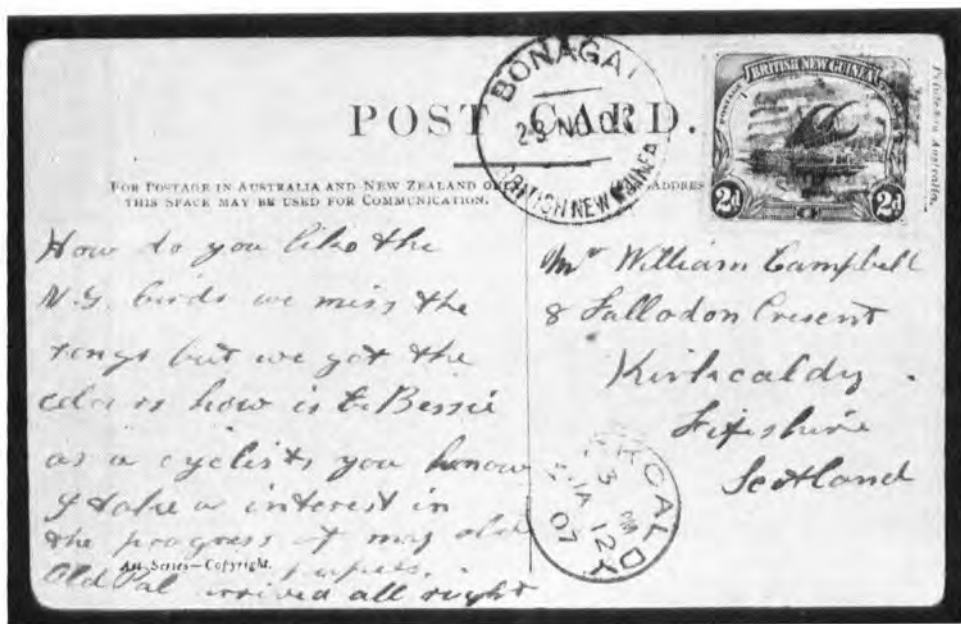 POST CARD.
BONAGAI
BRITISH NEW GUINEA
BRITISH NEW GUINEA
POSTAGE
2d 2d
Printed in Australia.
FOR POSTAGE IN AUSTRALIA AND NEW ZEALAND ADDRES
THIS SPACE MAY BE USED FOR COMMUNICATION.
How do you like the
N.G. birds we miss the
songs but we got the
how is Bessie
as a cyclists you know
I take a interest in
the progress of my old
Art Series—Copyright. papers.
Old Pal arrived all right
Mr William Campbell
8 Fallodon Cresent
Kirkcaldy
Fifeshire
Scotland
KIRKCALDY
JA 12
07